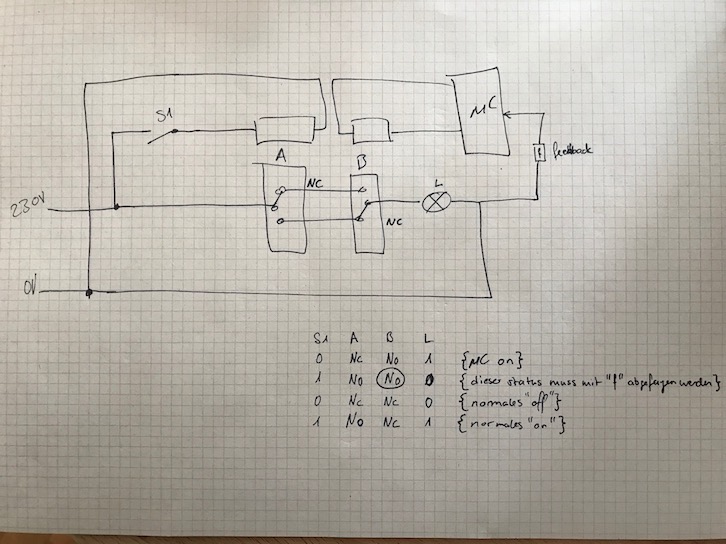 S1
μC
feedback
f
A
B
NC
L
230V
NC
0V
S1 A B L
0 NC NO 1 {μC on}
1 NO NO 0 {dieser status muss mit "f" abgefangen werden}
0 NC NC 0 {normales "off"}
1 NO NC 1 {normales "on"}